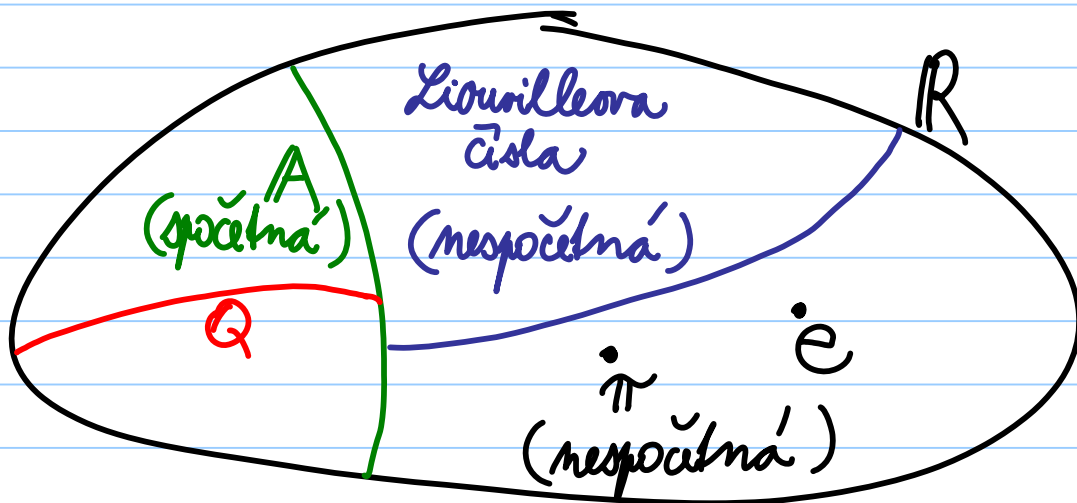 ℝ
Liouvilleova
čísla
𝔸
(spočetná)
(nespočetná)
Q
e
π
(nespočetná)